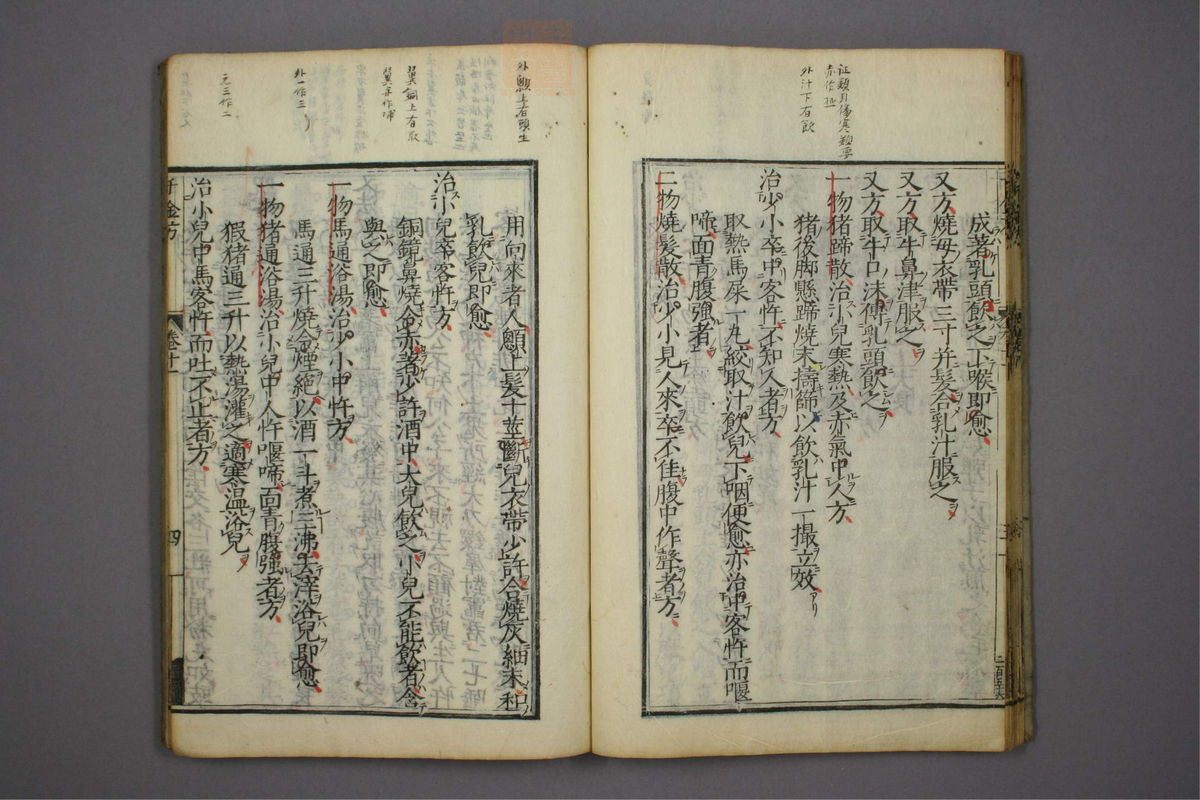 証類身傷寒類要
赤作砂
外汁下有飲
成著乳頭飲之下喉即愈
又方燒母衣帶三寸并髮合乳汁服之
又方取牛鼻津服之
又方取牛口沫傅乳頭飲之
一物猪蹄散治小兒寒熱及赤氣中人方
猪後脚懸蹄燒末擣篩以飲乳汁一撮立效
治少小卒中客忤不知人者方
取熱馬屎一丸絞取汁飲兒下咽便愈亦治中客忤而喔
啼面青腹強者
二物燒髮散治少小見人來卒不佳腹中作聲者方
外顖上有頭生
用向來者人顖上髮十莖斷兒衣帶少許合燒灰細末和
乳飲兒即愈
治小兒卒客忤方
翼銅上有取
銅鏡鼻燒令赤著少許酒中大兒飲之小兒不能飲者含
與之即愈
一物馬通浴湯治少小中忤方
外一作三
馬通三升燒令煙絕以酒一斗煮三沸去滓浴兒即愈
一物猪通浴湯治小兒中人忤喔啼面青腹強者方
元三作二
猳猪通三升以熱湯灌之適寒溫浴兒
治小兒中馬客忤而吐不止者方
千金方
卷十一
四